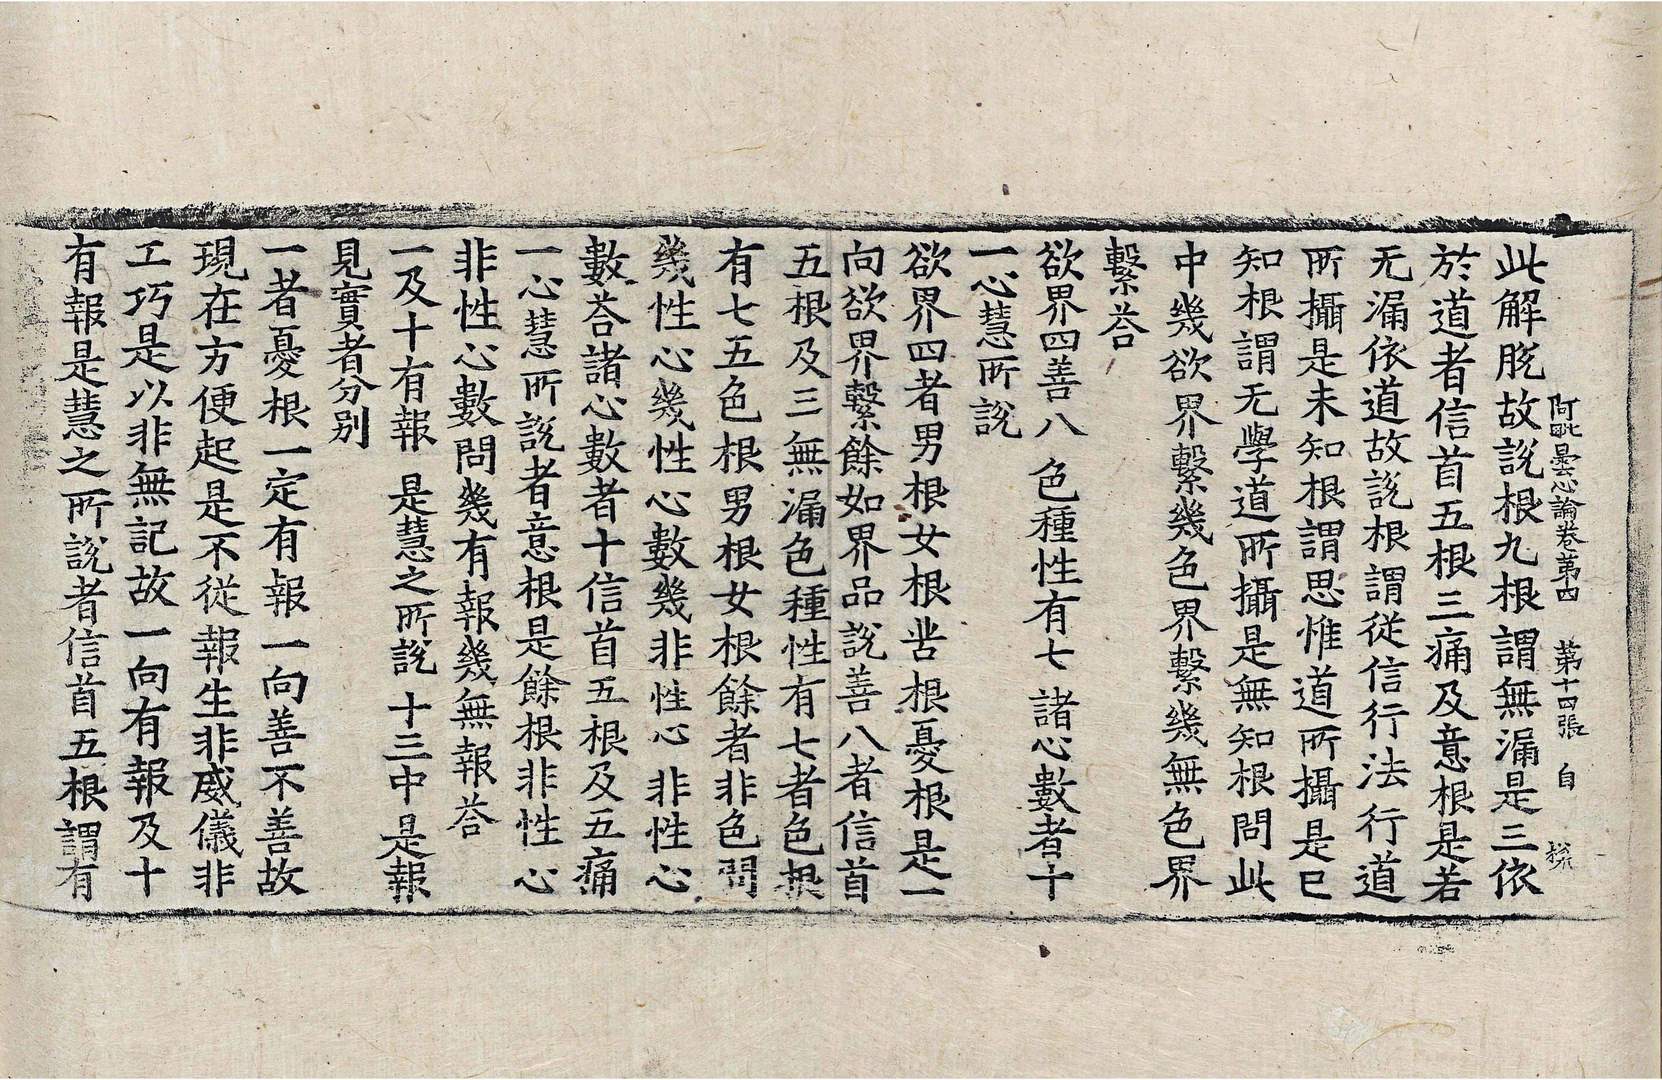 阿毗曇心論卷第四 第十四張 自
此解脫故說根九根謂無漏是三依
於道者信首五根三痛及意根是若
无漏依道故說根謂從信行法行道
所攝是未知根謂思惟道所攝是已
知根謂无學道所攝是無知根問此
中幾欲界繫幾色界繫幾無色界
繫荅
欲界四善八 色種性有七 諸心數者十
一心慧所說
欲界四者男根女根苦根憂根是一
向欲界繫餘如界品說善八者信首
五根及三無漏色種性有七者色根
有七五色根男根女根餘者非色問
幾性心幾性心數幾非性心非性心
數荅諸心數者十信首五根及五痛
一心慧所說者意根是餘根非性心
非性心數問幾有報幾無報荅
一及十有報 是慧之所說 十三中是報
見實者分別
一者憂根一定有報一向善不善故
現在方便起是不從報生非威儀非
工巧是以非無記故一向有報及十
有報是慧之所說者信首五根謂有